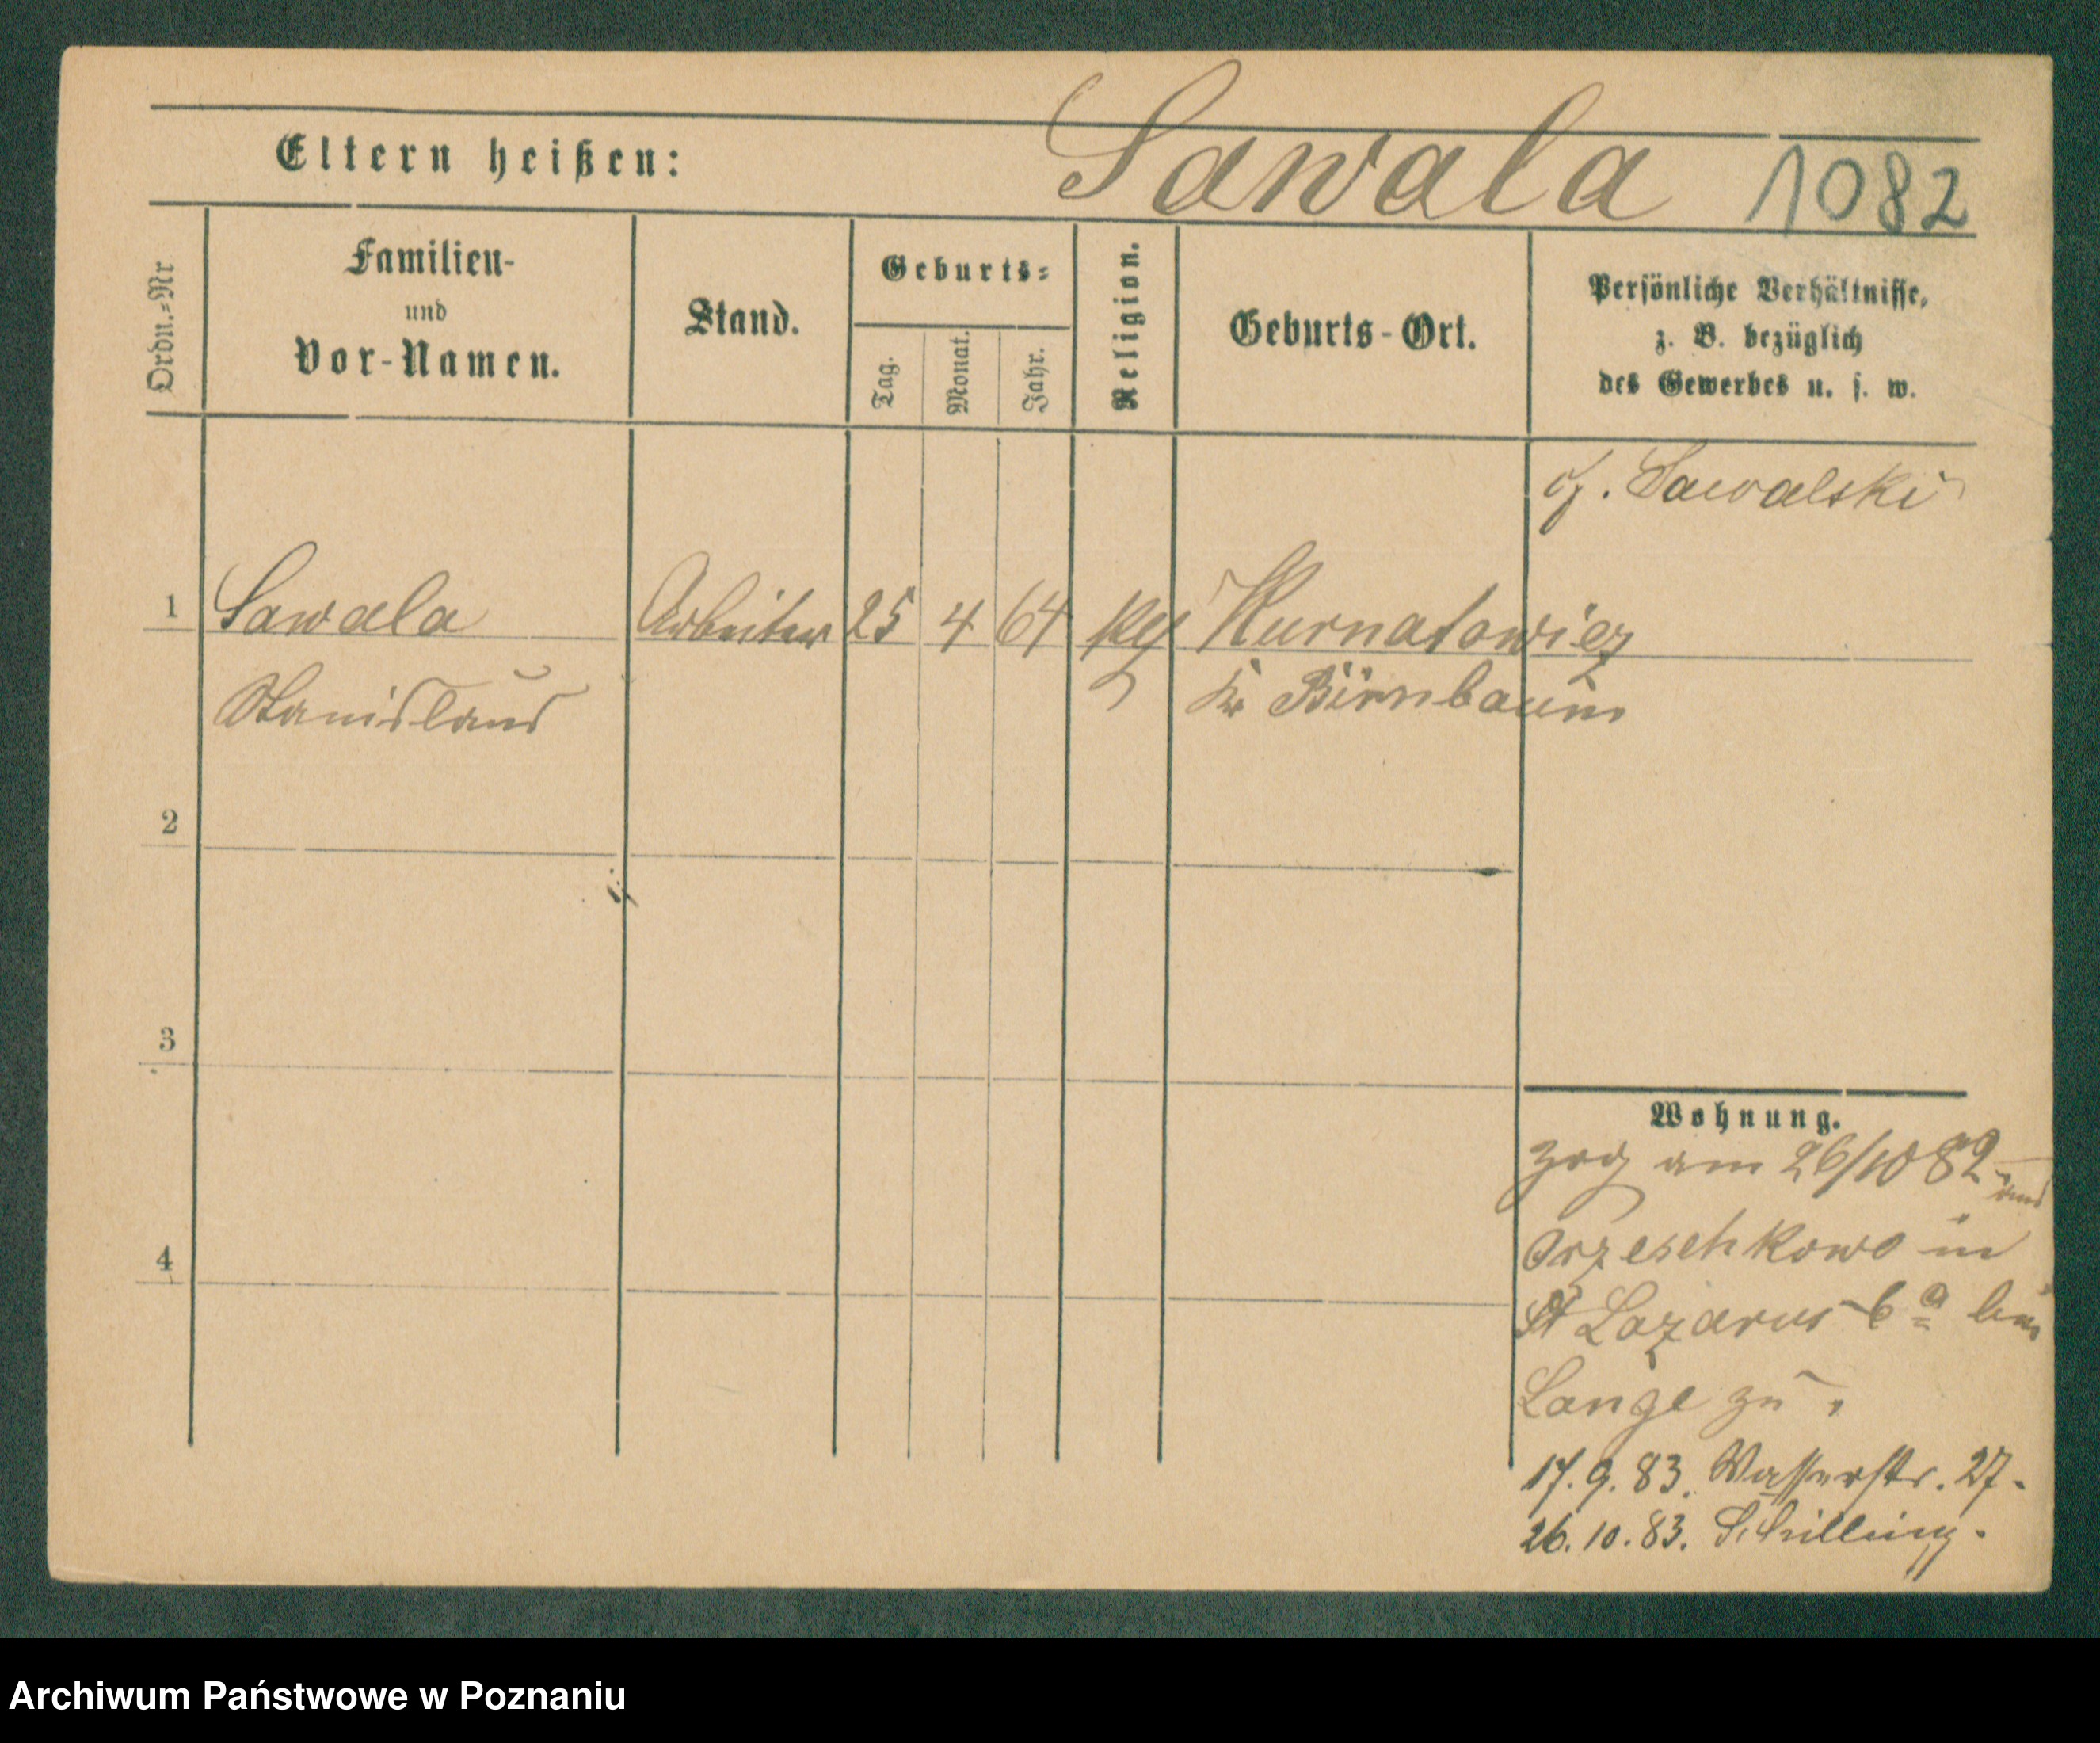 Eltern heißen:
Sawala 1082
Ordn.=Nr
Familien-
und
Vor-Namen.
Stand.
Geburts=
Tag.
Monat.
Jahr.
Religion.
Geburts-Ort.
Persönliche Verhältnisse,
z. B. bezüglich
des Gewerbes u. s. w.
cf. Sawalski
1 Sawala Arbeiter 25 4 64 Kurnatowicz
Stanislaus Kr Birnbaum
2
3
4
Wohnung.
zog am 26/10 82
Orzeschkowo in
St Lazarus 6a bei
Lange zu.
17. 9. 83. Wasserstr. 27.
26. 10. 83. Schilling.
Archiwum Państwowe w Poznaniu